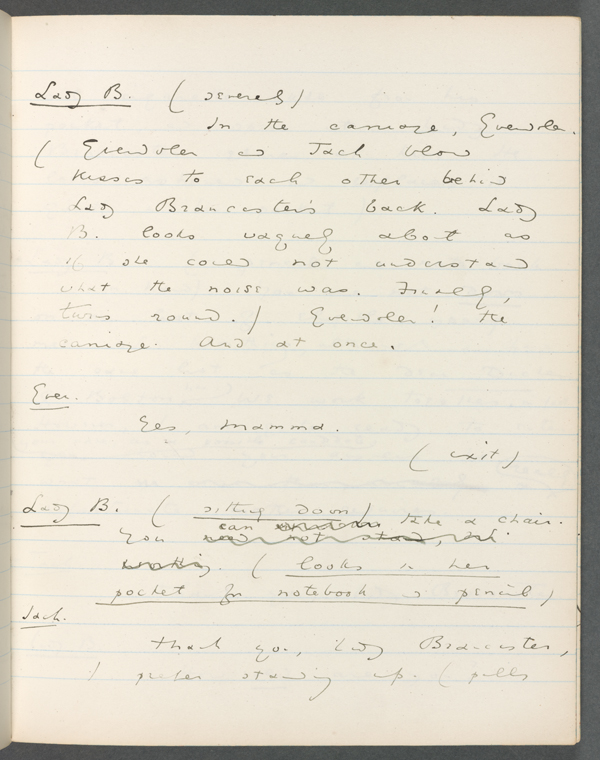 Lady B. ( severely)
In the carriage, Gwendolen.
( Gwendolen and Jack blow
kisses to each other behind
Lady Brancaster's back. Lady
B. looks vaguely about as
if she could not understand
what the noise was. Finally,
turns round.) Gwendolen! the
carriage. And at once.
Gwen.
Yes, mamma.
(exit)
Lady B. ( sitting down)
You can take a chair.
need not stand,
(looks in her
pocket for notebook & pencil)
Jack.
Thank you, Lady Brancaster,
I prefer standing up. (pulls